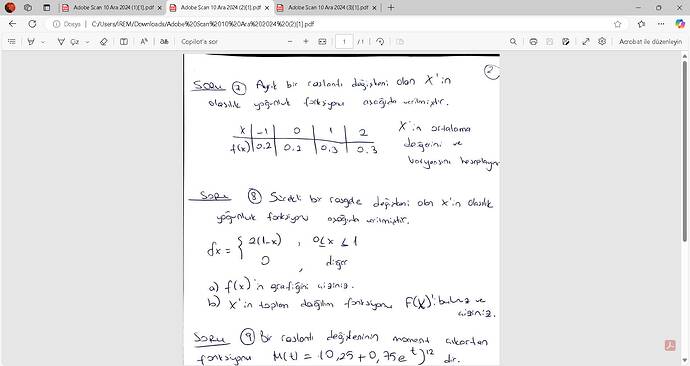 Adobe Scan 10 Ara 2024 (1)[1].pdf
Adobe Scan 10 Ara 2024 (2)[1].pdf
Adobe Scan 10 Ara 2024 (3)[1].pdf
Dosya
C:/Users/IREM/Downloads/Adobe%20Scan%2010%20Ara%202024%20(2)[1].pdf
Copilot'a sor
1
/1
Acrobat ile düzenleyin
2
Soru 7 Ayrık bir raslantı değişkeni olan X'in
olasılık yoğunluk fonksiyonu aşağıda verilmiştir.
x -1 0 1 2
f(x) 0,2 0,2 0,3 0,3
X'in ortalama
değerini ve
varyansını hesaplayın
Soru 8 Sürekli bir rasgele değişkeni olan X'in olasılık
yoğunluk fonksiyonu aşağıda verilmiştir.
fx = { 2(1-x) , 0≤x≤1
0 , diğer
a) f(x)'in grafiğini çiziniz.
b) X'in toplam dağılım fonksiyonu F(X)'i bulunuz ve
çiziniz.
Soru 9 Bir raslantı değişkeninin moment çıkartan
fonksiyonu M(t) = (0,25 + 0,75e^t)^12 dir.